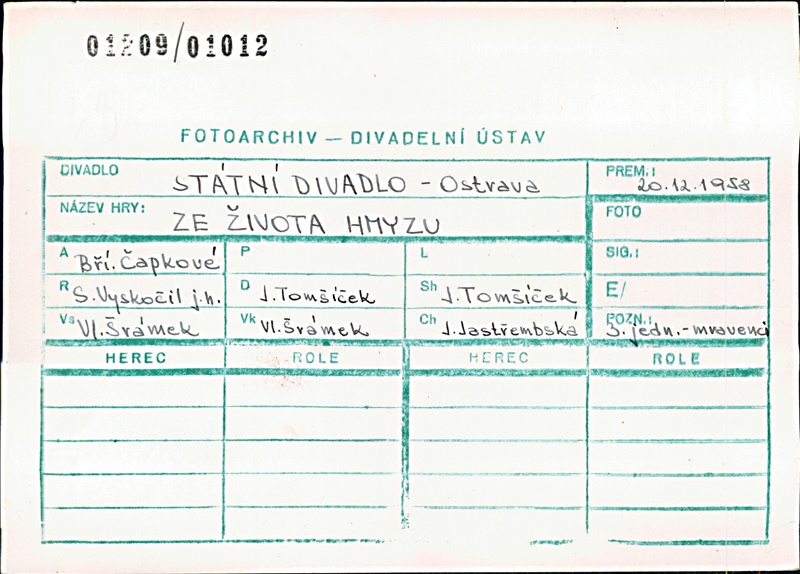 01209/01012
FOTOARCHIV — DIVADELNÍ ÚSTAV
DIVADLO STÁTNÍ DIVADLO - Ostrava PREM.: 20.12.1958
NÁZEV HRY: ZE ŽIVOTA HMYZU FOTO
A Bří. Čapkové P L SIG.:
R S. Vyskočil j.h. D J. Tomšíček Sh J. Tomšíček E/
Vs Vl. Šrámek Vk Vl. Šrámek Ch J. Jastřembská POZN.: 3. jedn. - mravenci
HEREC ROLE HEREC ROLE